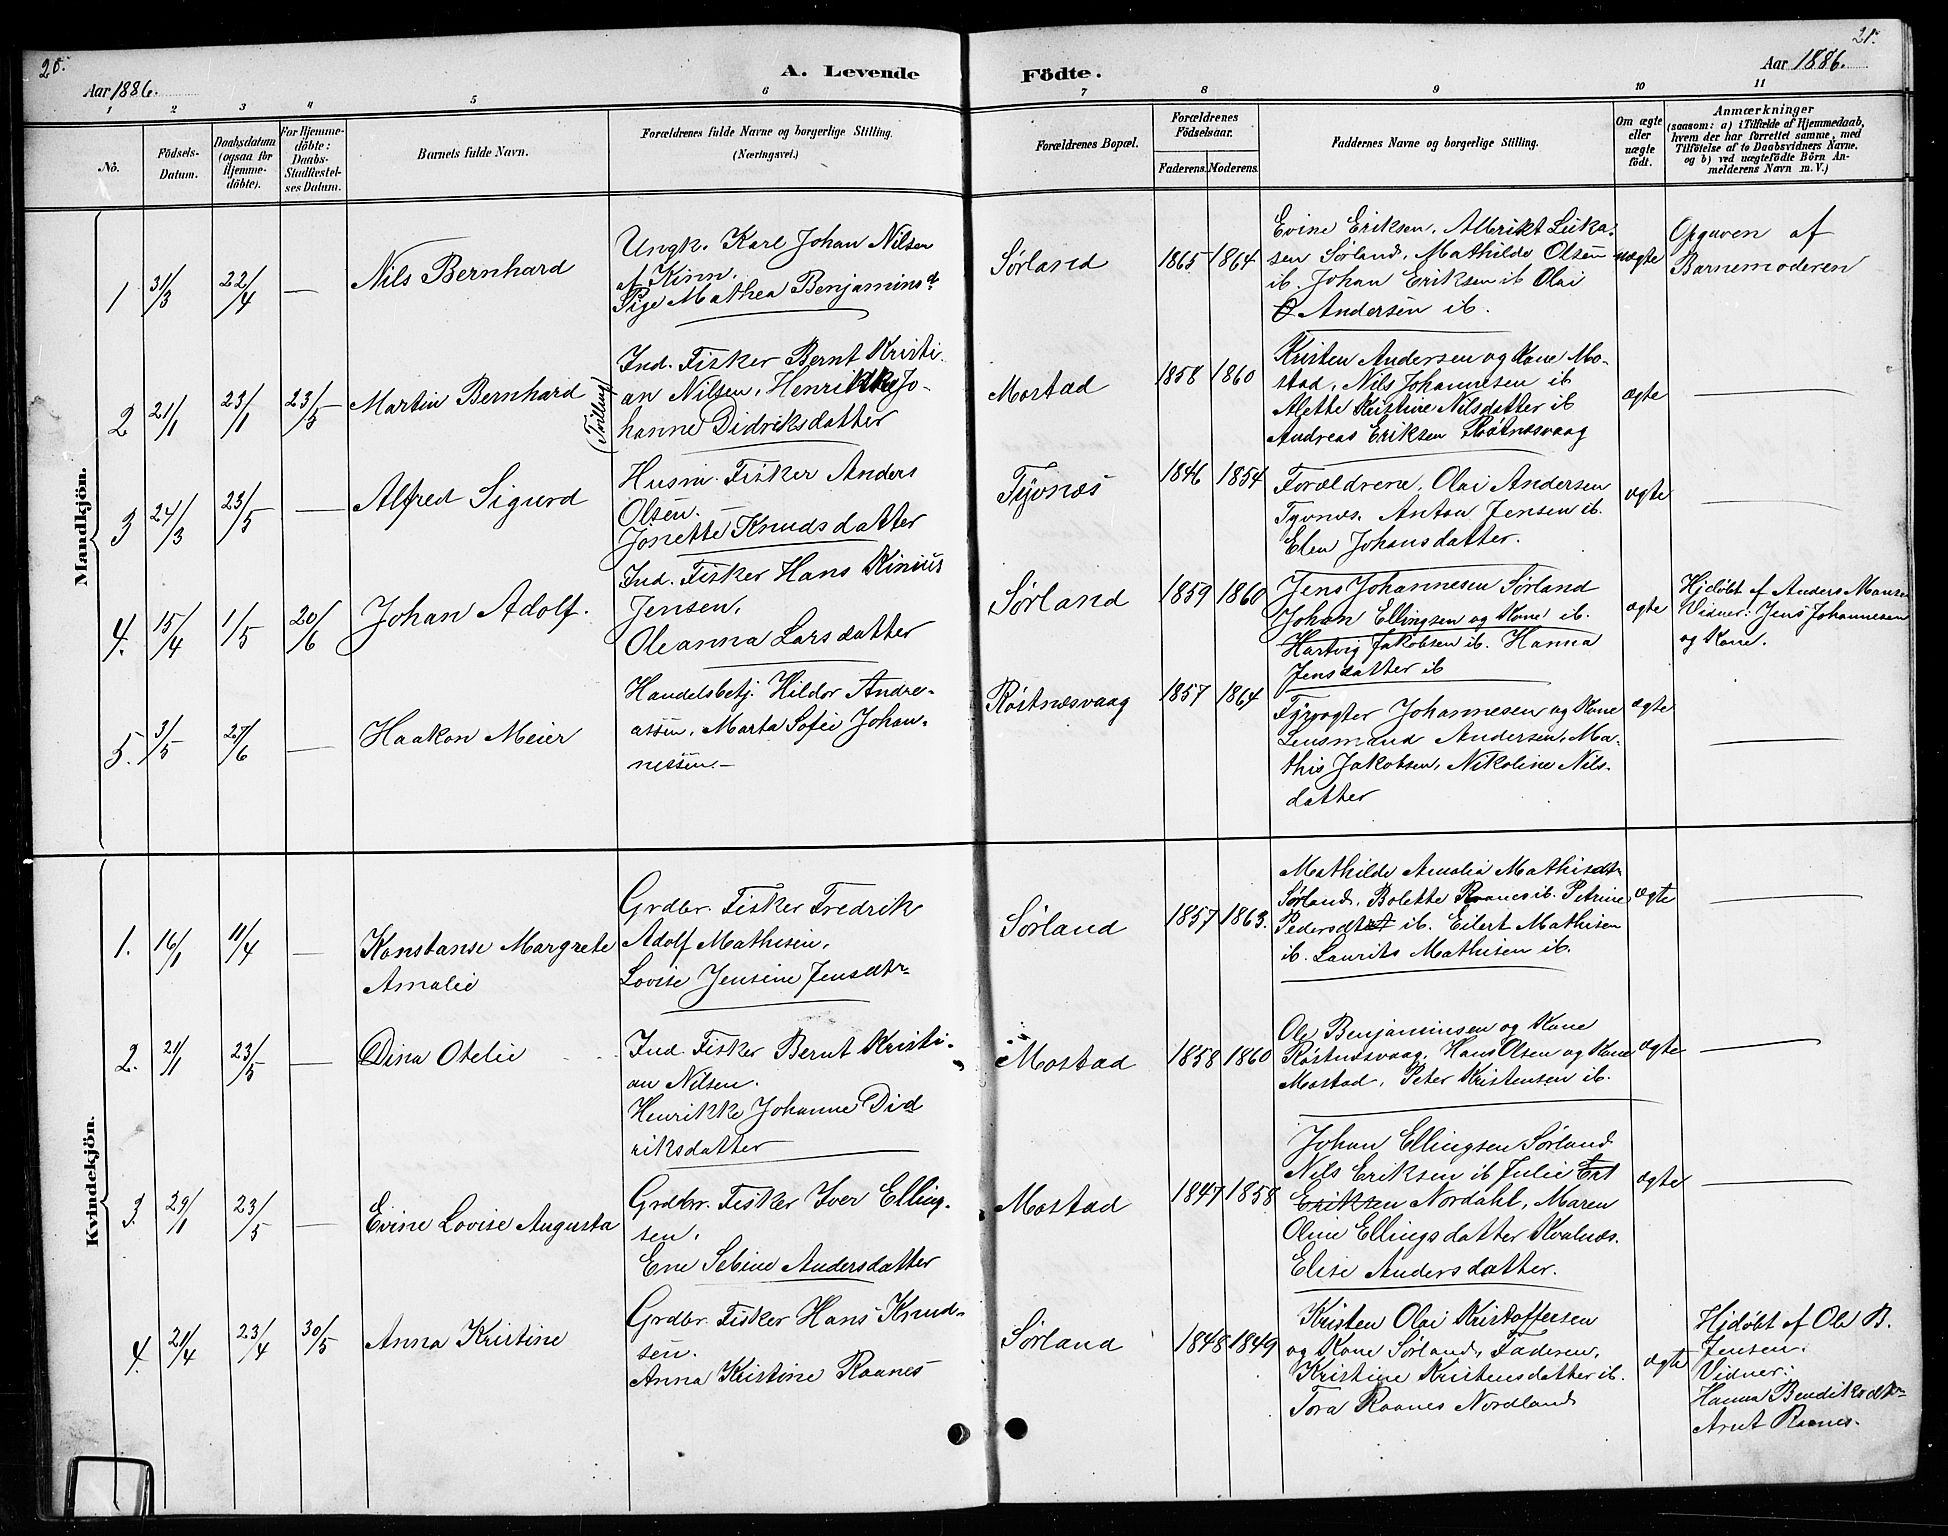 20.
21.
Aar 1886.
A. Levende
Födte.
Aar 1886.
1
2
3
4
5
6
7
8
9
10
11
No.
Födsels-
Datum.
Daabsdatum
(ogsaa for
Hjemme-
döbte).
For Hjemme-
döbte:
Daabs-
Stadfæstel-
ses Datum.
Barnets fulde Navn.
Forældrenes fulde Navne og borgerlige Stilling.
(Næringsvei.)
Forældrenes Bopæl.
Forældrenes
Födselsaar.
Faderens.
Moderens.
Faddernes Navne og borgerlige Stilling.
Om ægte
eller
uægte
födt.
Anmærkninger
(saasom: a) i Tilfælde af Hjemmedaab,
hvem der har forrettet samme, med
Tilföielse af to Daabsvidners Navne,
og b) ved uægtefödte Börn An-
melderens Navn m. V.)
Mandkjön.
1
31/3
22/4
—
Nils Bernhard
Ungk. Karl Johan Nilsen
af Kinn.
Pige Mathea Benjaminsd.
Sørland
1865
1864
Evine Eriksen, Albrikt Luka-
sen Sørland, Mathilde Olsen
ib. Johan Eriksen ib Olai
Andersen ib.
uægte
Opgaven af
Barnemoderen
2
21/1
23/1
23/5
Martin Bernhard
(Tvilling)
Ind. Fisker Bernt Kristi-
an Nilsen, Henrikke Jo-
hanne Didriksdatter
Mostad
1858
1860
Kristen Andersen og Kone Mo-
stad, Nils Johannesen ib
Alette Kristine Nilsdatter ib
Andreas Eriksen Røstnæsvaag
ægte
—
3
24/3
23/5
—
Alfred Sigurd
Husm. Fisker Anders
Olsen.
Jonette Knudsdatter
Tyvnæs
1846
1854
Forældrene, Olai Andersen
Tyvnæs. Anton Jensen ib.
Elen Johansdatter.
ægte
—
4.
15/4
1/5
20/6
Johan Adolf.
Ind. Fisker Hans Kinius
Jensen,
Oleanna Larsdatter
Sørland
1859
1860
Jens Johannesen Sørland
Johan Ellingsen og Kone ib.
Hartvig Jakobsen ib. Hanna
Jensdatter ib
ægte
Hjdøbt af Anders Monsen
Vidner: Jens Johannesen
og Kone.
5.
3/5
27/6
—
Haakon Meier
Handelsbetj. Hildor Andre-
assen, Marta Sofie Johan-
nessen.—
Røstnæsvaag
1857
1864
Fyrvogter Johannesen og Kone
Lensmand Andersen, Ma-
this Jakobsen, Nikoline Nils-
datter
ægte
—
Kvindekjön.
1.
16/1
11/4
—
Konstanse Margrete
Amalie
Grdbr. Fisker Fredrik
Adolf Mathisen,
Lovise Jensine Jensdtr.
Sørland
1857
1863.
Mathilde Amalia Mathisdtr.
Sørland, Bolette Raanes ib. Petrine
Pedersdt ib. Eilert Mathisen
ib. Laurits Mathisen ib.
ægte
—
2.
21/1
23/5
—
Dina Otelie
Ind. Fisker Bernt Kristi-
an Nilsen.
Henrikke Johanne Did
riksdatter
Mostad
1858
1860
Ole Benjaminsen og Kone
Røstnæsvaag, Hans Olsen og Kone
Mostad, Peter Kristensen ib.
ægte
—
3.
29/1
23/5
—
Evine Lovise Augusta
Grdbr. Fisker Iver Elling-
sen,
Ene Sebine Andersdatter
Mostad
1847
1858
Johan Ellingsen Sørland
Nils Eriksen ib Julie
Eriksen Nordahl, Maren
Oline Ellingsdatter Kvalnæs.
Elise Andersdatter.
ægte
—
4.
21/4
23/4
30/5
Anna Kristine
Grdbr. Fisker Hans Knud-
sen.
Anna Kristine Raanes
Sørland
1848
1849
Kristen Olai Kristoffersen
og Kone Sørland, Faderen,
Kristine Kristensdatter ib.
Tora Raanes Nordland
ægte
Hjdøbt af Ole B.
Jensen.
Vidner:
Hanna Bendiksdtr.
Arnt Raanes.